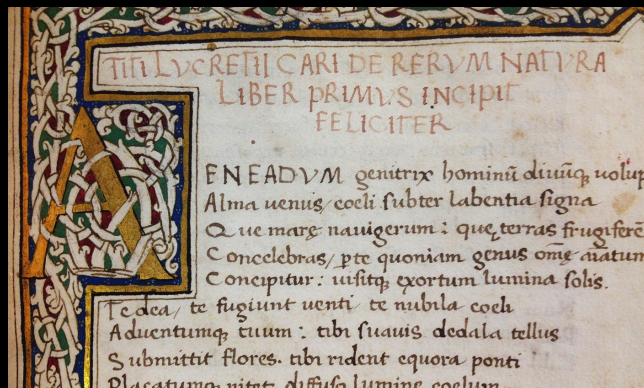 TITI LVCRETII CARI DE RERVM NATVRA
LIBER PRIMVS INCIPIT
FELICITER
AENEADVM genitrix hominū diuūq; volup
Alma venus, coeli subter labentia signa
Que marę nauigerum: quę terras frugiferē
Concelebras, ꝑte quoniam genus omē aīatum
Concipitur: uisitq; exortum lumina solis.
Te dea, te fugiunt venti, te nubila coeli
Aduentumq; tuum: tibi suauis dedala tellus
Submittit flores. tibi rident equora ponti
Placatumq; nitet diffuso lumine coelum